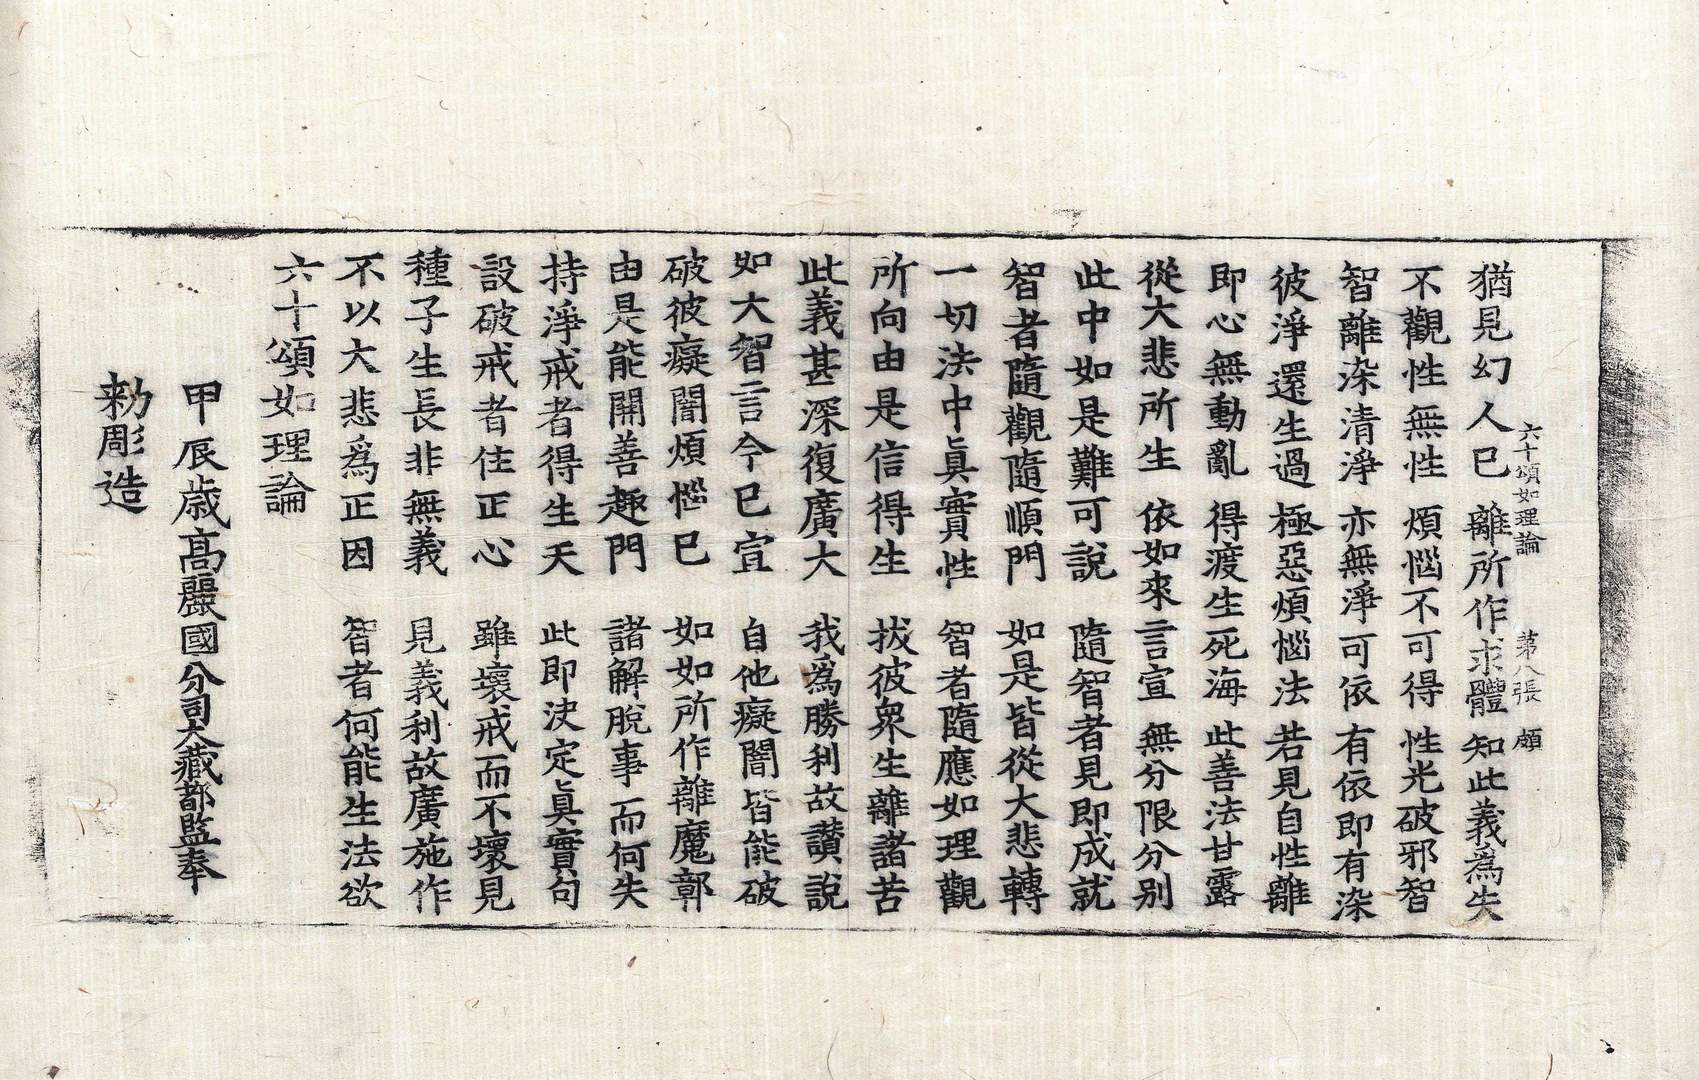 六十頌如理論 第八張 頗
猶見幻人已 離所作求體 知此義爲失
不觀性無性 煩惱不可得 性光破邪智
智離染清淨 亦無淨可依 有依即有染
彼淨還生過 極惡煩惱法 若見自性離
即心無動亂 得渡生死海 此善法甘露
從大悲所生 依如來言宣 無分限分別
此中如是難可說 隨智者見即成就
智者隨觀隨順門 如是皆從大悲轉
一切法中眞實性 智者隨應如理觀
所向由是信得生 拔彼衆生離諸苦
此義甚深復廣大 我爲勝利故讚說
如大智言今已宣 自他癡闇皆能破
破彼癡闇煩惱已 如如所作離魔鄣
由是能開善趣門 諸解脫事而何失
持淨戒者得生天 此即決定眞實句
設破戒者住正心 雖壞戒而不壞見
種子生長非無義 見義利故廣施作
不以大悲爲正因 智者何能生法欲
六十頌如理論
甲辰歲高麗國分司大藏都監奉
勅彫造